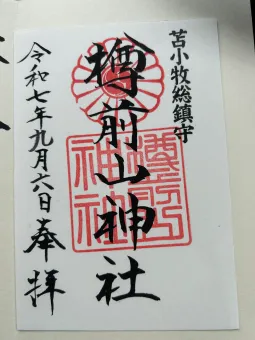 苫小牧総鎮守
樽前山神社
樽前山神社
令和七年九月六日 奉拝